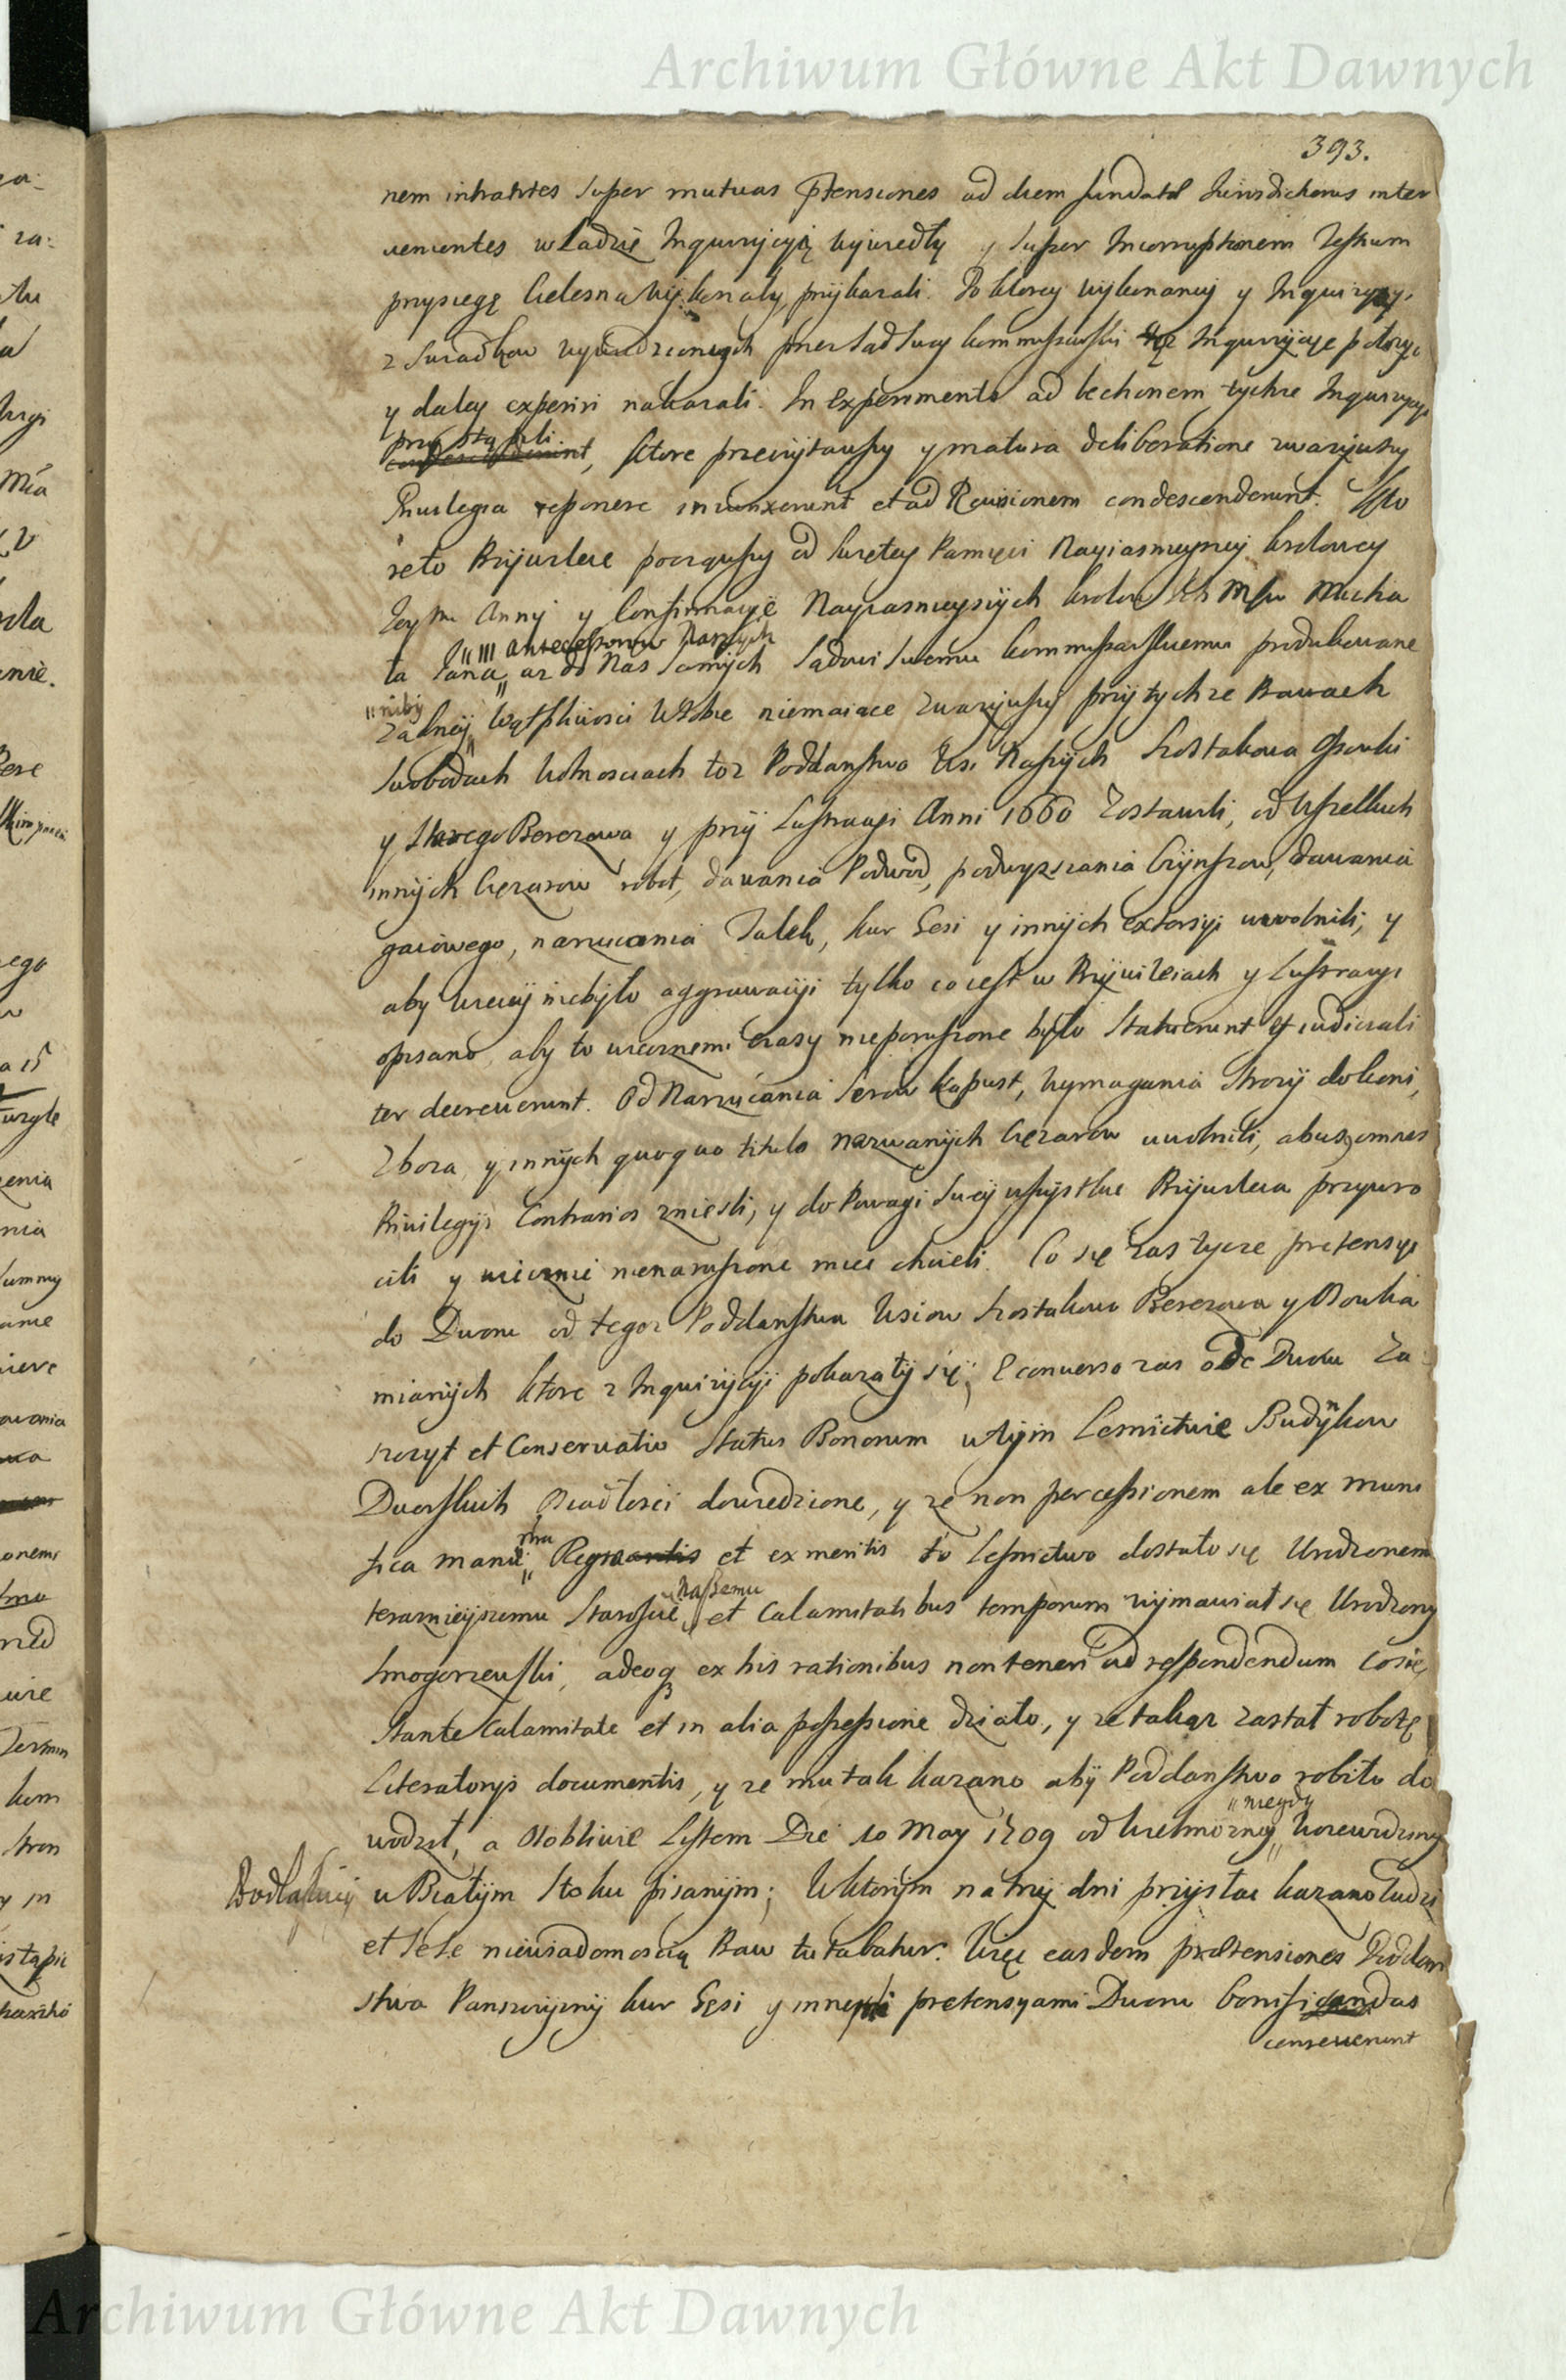 Archiwum Główne Akt Dawnych
393.
nem intrantes super mutuas ptensiones ad diem fundatae Jurisdictionis inter
venientes w Ładzie Inquizycyią wywiedły y super Incorruptionem Testium
przysięgę Cielesną wykonały, przykazali. Po ktorey wykonaney y Inquizycyi,
z Swiadkow wywiedzionych przez Sąd swoy kommissarski tęż Inquizycye
y daley experiri nakazali. In Experimento ad lectionem tychze Inquizycyi
przystąpili, ktore przeczytawszy y matura deliberatione zwazywszy
Privilegia reponere iniunxerunt et ad Revisionem condescenderunt. Kto
re to Przywileie począwszy od Swiętey Pamięci Nayiasnieyszey krolowey
Jey Mci Anny y Confirmacye Nayiasnieyszych krolow Ich Msciow Micha
" III antecessorow Naszych
ła Jana " az do Nas samych Sądowi swemu kommissarskiemu produkowane
" niby
zadney " wątpliwosci w sobie niemaiące zwazywszy przy tychze Prawach
Swobodach Wolnosciach toz Poddanstwo Wsi Naszych Szostakowa Osowki
y Starego Berezowa y przy Lustracyi Anni 1660 zostawili, od wszelkich
innych Cięzarow robot, dawania Podwod, podwyzszania Czynszow, dawania
gaiowego, narzucania Talek, kur Gęsi y innych extorsyi uwolnili, y
aby więcey niebyło aggrawacyi tylko co iest w Przywileiach y Lustracyi
opisano, aby to wiecznemi czasy nieporuszone było Statuerunt et iudiciali
ter decreverunt. Od Narzucania Serow kapust, wymagania Strozy do koni,
Zboza y innych quoquo titulo nazwanych Cięzarow uwolnili, abusq omnes
Privilegijs Contrarios zniesli, y do Powagi swey wszystkie Przywileia przywro
cili y wiecznie nienaruszone miec chcieli. Co się zas tycze pretensyi
do Dworu od tegoz Poddanstwa Wsiow Szostakowa Berezowa y
mianych ktore z Inquizycyi pokazały się, E converso zas ode Dworu Za
szczyt et Conservatio Status Bonorum w tym Lesnictwie Budynkow
Dworskich Osiadłosci dowiedzione, y ze non per cessionem ale ex muni
fica manu " Regia et ex meritis to Lesnictwo dostało się Urodzonem
" Naszemu
teraznieyszemu Staroscie " et Calamitatibus temporum wymawiał się Urodzony
Smogorzewski, adeoq ex his rationibus non teneri ad respondendum Co się
stante Calamitate et in alia possessione działo, y ze takąz zastał robotę
Literatorijs documentis, y ze mu tak kazano aby Poddanstwo robiło do
" niegdy
wodził, a osobliwie Listem Die 10 May 1709 od Wielmoznej "
Podlaskiey w Białym Stoku pisanym; W ktorym na trzy dni przysłac kazano ludzi
et Sese niewiadomoscią Praw tutabatur. Więc easdem praetensiones Poddan
stwa Panszczyzny kur Gęsi y innemi pretensyami Dworu
censuerunt
Archiwum Główne Akt Dawnych